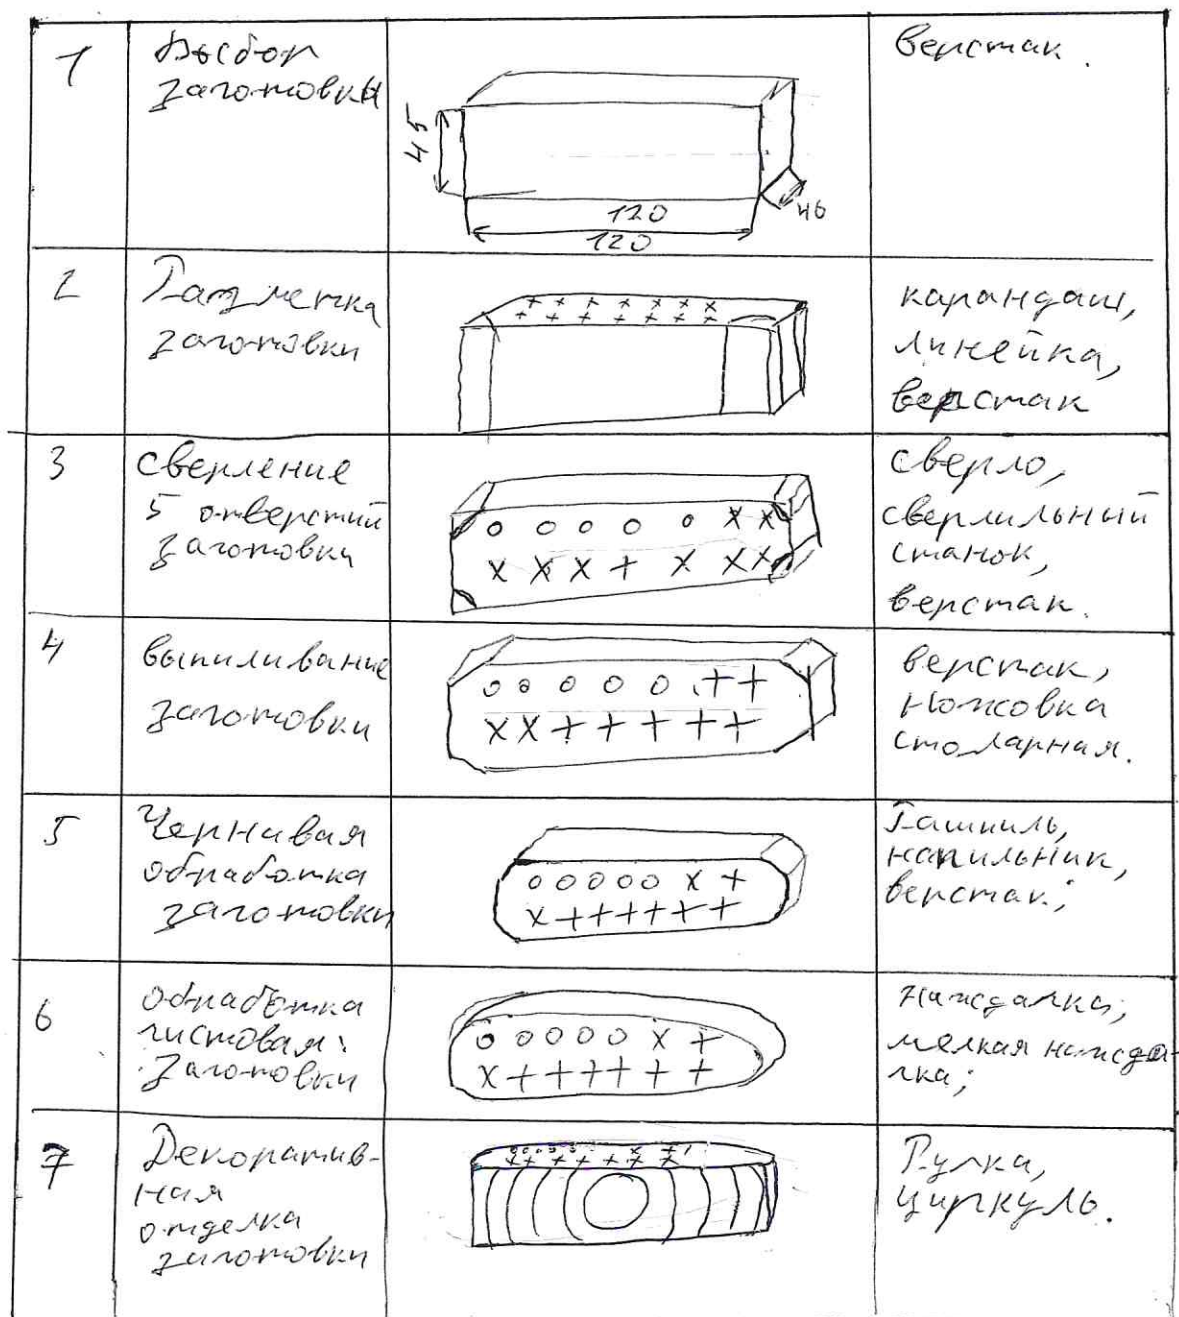 1
Высбор
заготовки
45
120
120
40
верстак.
2
Разметка
заготовки
карандаш,
линейка,
верстак
3
сверление
5 отверстий
заготовки
сверло,
сверлильный
станок,
верстак.
4
выпиливание
заготовки
верстак,
Ножовка
столярная.
5
Чернивая
обработка
заготовки
Рашпиль,
напильник,
верстак;
6
обработка
чистовая:
заготовки
Наждалка;
мелкая наждa-
лка;
7
Декоратив-
ная
отделка
заготовки
Ручка,
циркуль.